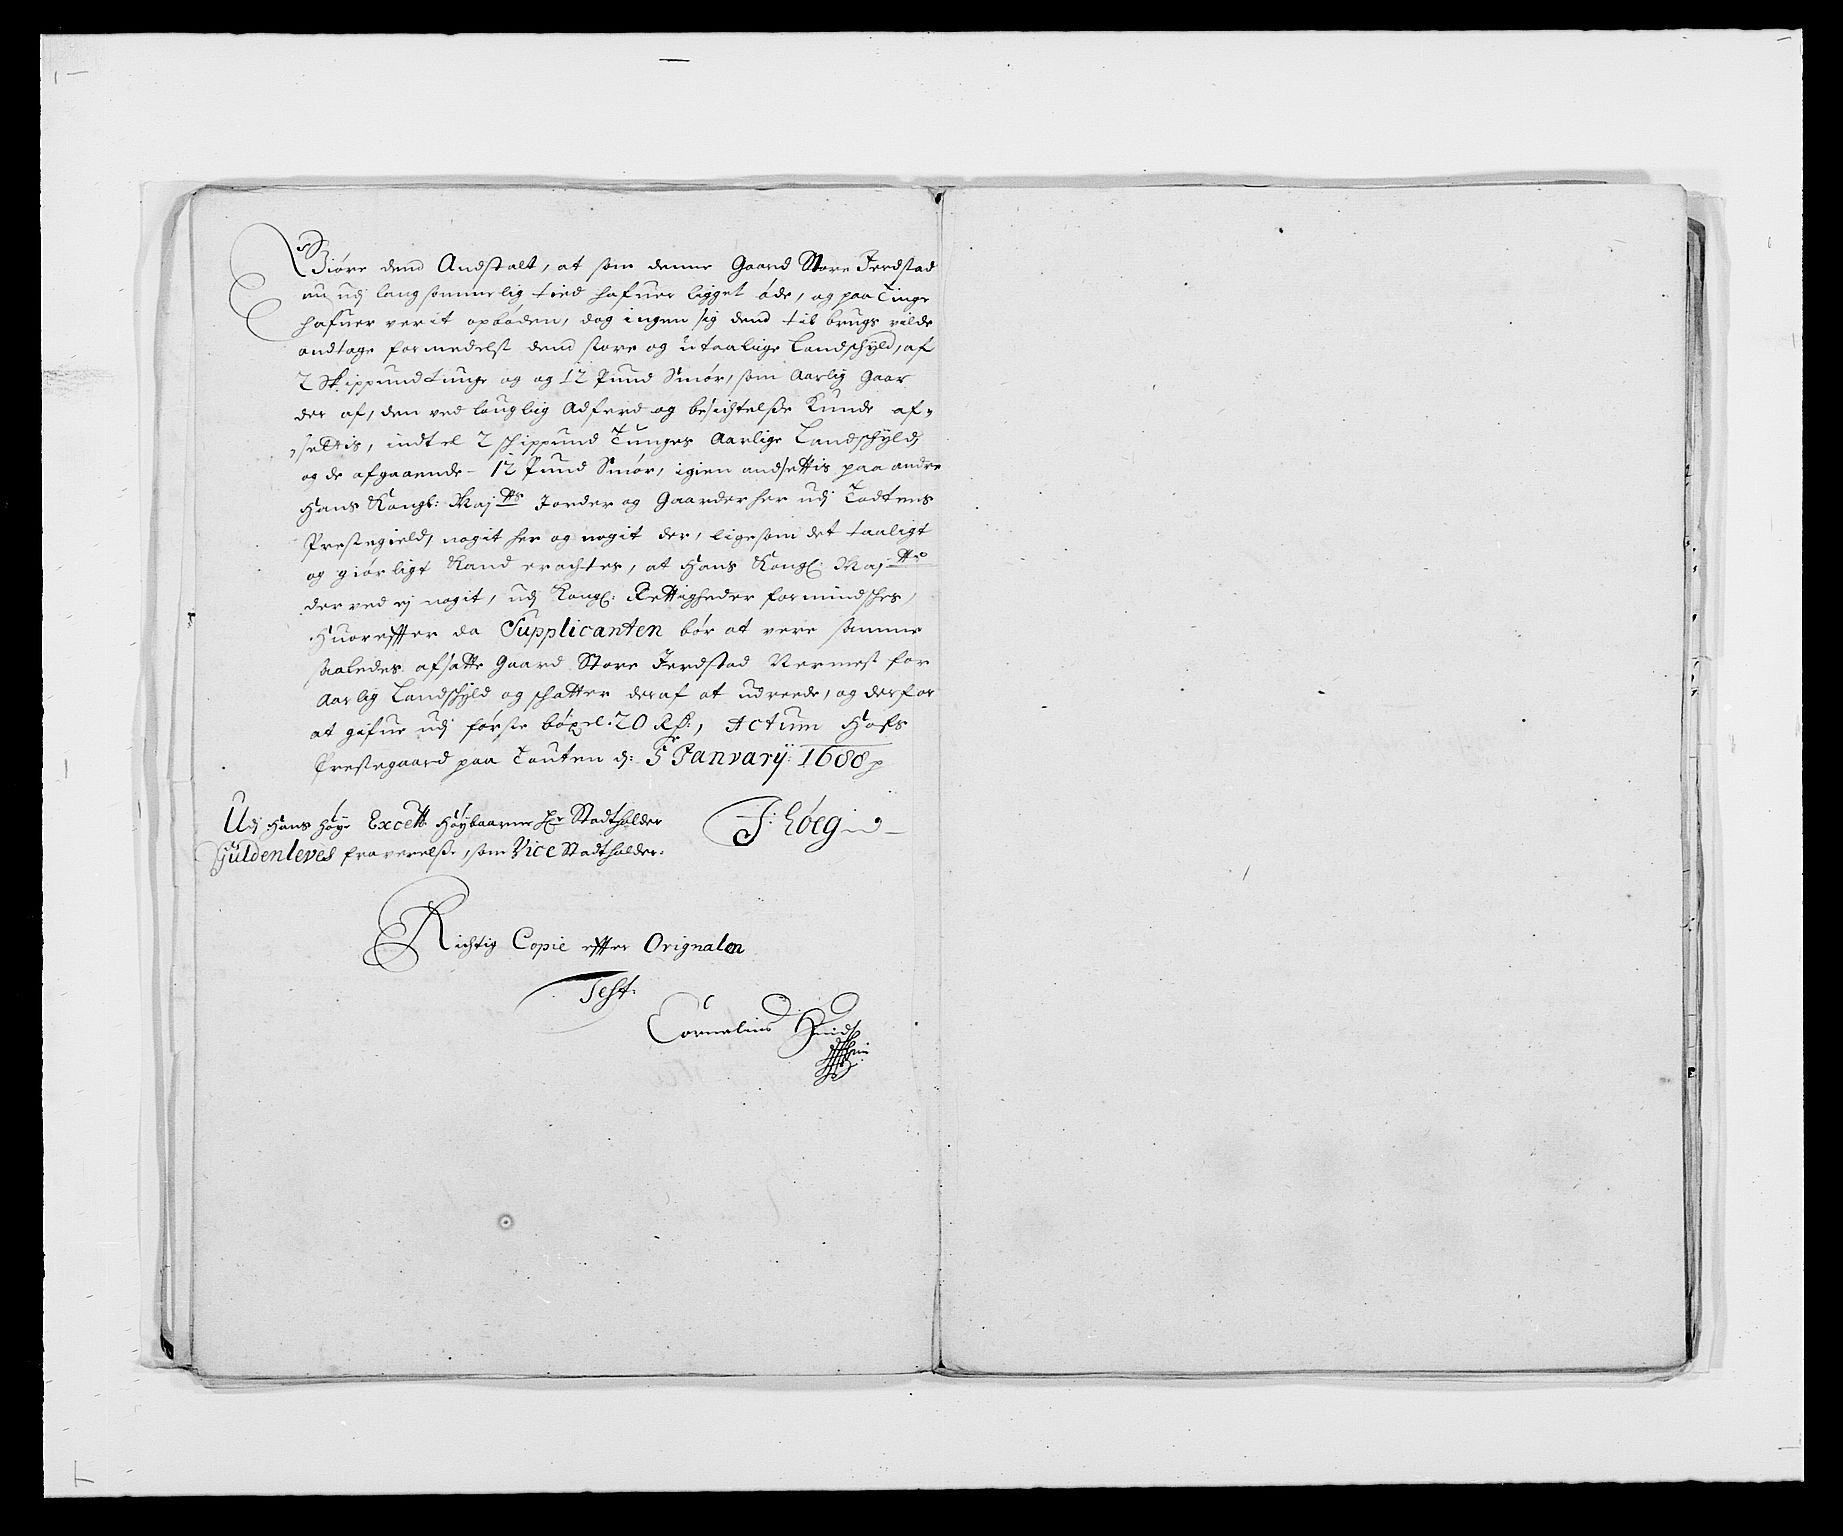 Giøre dend Andstalt, at som denne Gaard Store Jerdstad
nu udj langsommelig tied hafuer ligget øde, og paa Tinge
hafuer verit opbøden, dog ingen sig dend till brugs vilde
andtage formedelst dend store og utaalige Landschyld, af
2 Skippund tunge og og 12 Pund Smør, som Aarlig Gaar
der af, den ved lauglig Adferd og besichtelse Kunde af-
settis, indtel 2 schippund Tunges Aarlige Landschyld,
og de afgaaende - 12 Pund Smør, igien andsettis paa andre
Hans Kongl: Maj:tts Jorder og Gaarder her udj Todtens
Prestegield, nogit her og nogit der, ligesom det taaligt
og giørligt Kand erachtes, at Hans Kongl: Maj:tts
derved ej nogit, udj Kongl: Rettigheder formindsches,
Huoreffter da Supplicanten bør at vere samme
saaledes afsatte Gaard Store Jerdstad Nermest for
Aarlig Landschyld og schatter deraf at udreede, og derfor
at gifue udj første bøxel 20 Rd:, Actum Hofs
Prestegaard paa Touten d: 5 Janvarij: 1688
Udj Hans Høye Excell: Høybaarne Hr Stadtholder
Guldenleves fraverelse, som Vice Stadtholder.
J: Høeg
Richtig Copie effter Orignalen
Test:
Cornelius